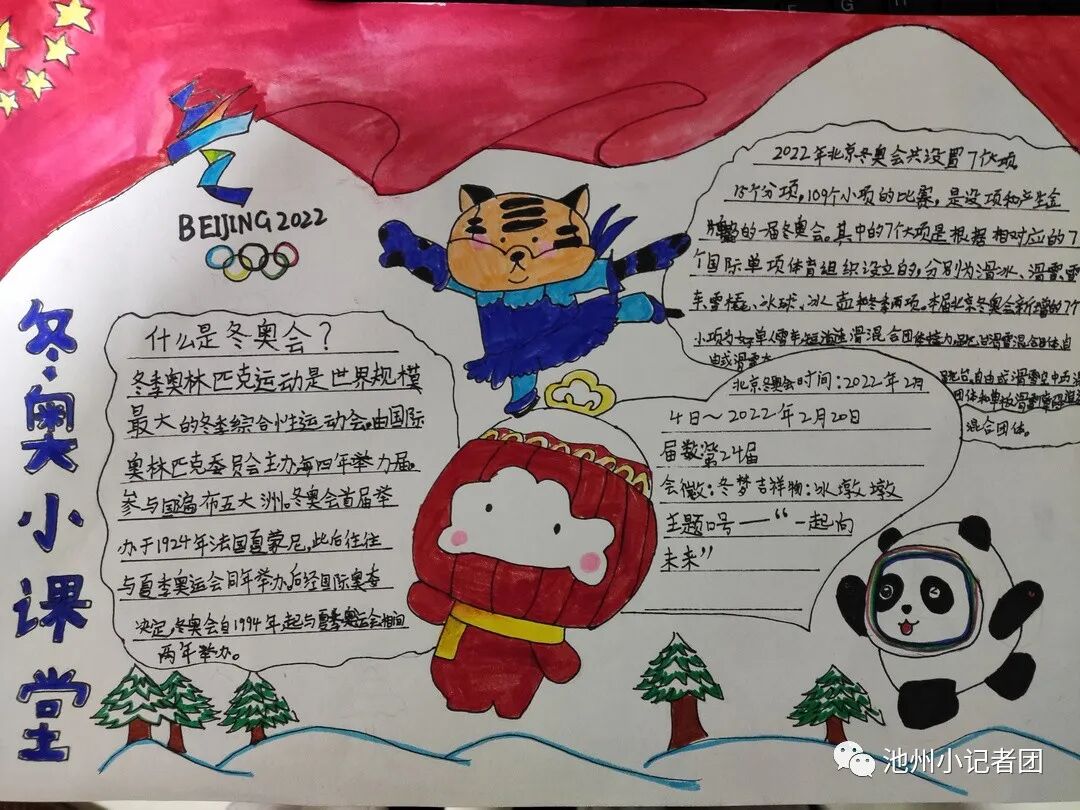 冬奥小课堂
BEIJING 2022
什么是冬奥会？
冬季奥林匹克运动是世界规模
最大的冬季综合性运动会。由国际
奥林匹克委员会主办每四年举办届。
参与国遍布五大洲。冬奥会首届举
办于1924年法国夏蒙尼，此后往往
与夏季奥运会同年举办。后经国际奥委
决定，冬奥会自1994年起与夏季奥运会相间
两年举办。
2022年北京冬奥会共设置7个大项
15个分项，109个小项的比赛，是设项和产生金
的一届冬奥会。其中的7个大项是根据相对应的7
个国际单项体育组织设立的，分别为滑冰、滑雪、雪
车、雪橇、冰球、冰壶和冬季两项。本届北京冬奥会新增的7个
小项为女子单人雪车、短道速滑混合团体接力，
自由式滑雪
混合团体。
北京冬奥会时间：2022年2月
4日～2022年2月20日
届数第24届
会徽：冬梦吉祥物：冰墩墩
主题口号—“一起向
未来”
池州小记者团